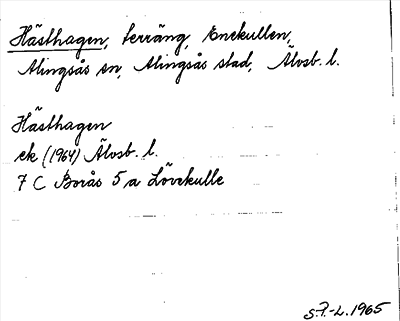 Hästhagen, terräng, Enekullen,
Alingsås sn, Alingsås stad, Älvsb. l.
Hästhagen
ek (1964) Älvsb. l.
7 C Borås 5 a Lövekulle
S.F.-L. 1965